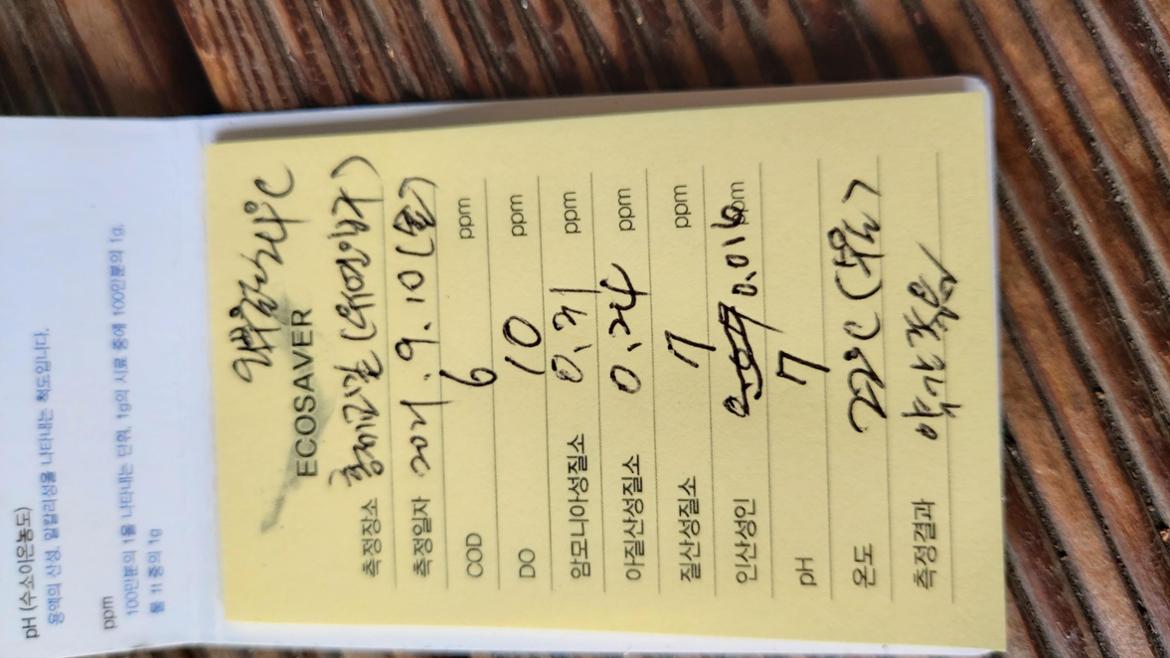 pH (수소이온농도)
용액의 산성, 알칼리성을 나타내는 척도입니다.
ppm
100만분의 1을 나타내는 단위, 1g의 시료 중에 100만분의 1g,
물 1t 중의 1g
24℃
ECOSAVER
측정장소
측정일자 2021. 9. 10 (금)
COD 6 ppm
DO 10 ppm
암모니아성질소 0.21 ppm
아질산성질소 0.24 ppm
질산성질소 7 ppm
인산성인 0.016 ppm
pH 7
온도 22℃ (수온)
측정결과 약간 좋음